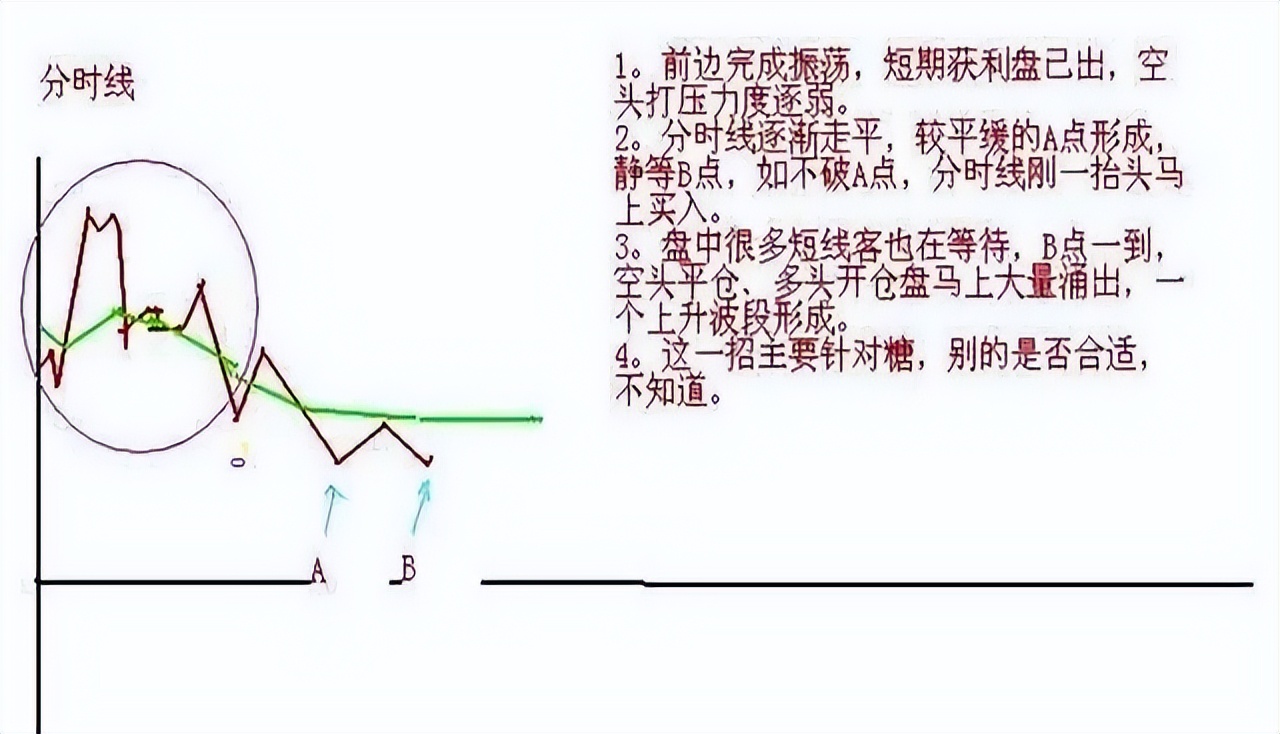 分时线
1。前边完成振荡，短期获利盘已出，空
头打压力度逐弱。
2。分时线逐渐走平，较平缓的A点形成，
静等B点，如不破A点，分时线刚一抬头马
上买入。
3。盘中很多短线客也在等待，B点一到，
空头平仓、多头开仓盘马上大量涌出，一
个上升波段形成。
4。这一招主要针对糖，别的是否合适，
不知道。
A
B